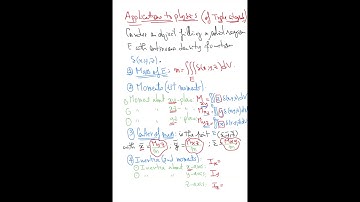 Application to physics (of Triple integrals)
Consider an object filling a solid region
E with continuous density function
δ(x,y,z).
① Mass of E: m = ∭ δ(x,y,z) dV
E
② Moments (1st moments):
① Moment about xy-plane
③ Center of mass: is the point = (x̄,ȳ,z̄)
with x̄ = Myz/m, ȳ = Mxz/m, z̄ = Mxy/m
④ Inertia (2nd moments)
① Inertia about x-axis: Ix=
② " " y-axis: Iy=
z-axis: Iz=